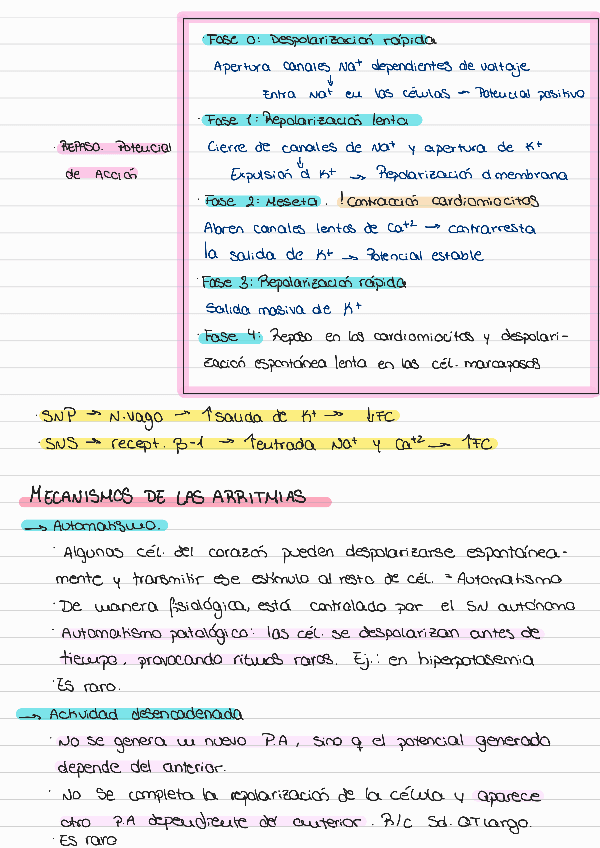 Fase 0: Despolarización rápida
Apertura canales Na+ dependientes de voltaje
↓
Entra Na+ en las células → Potencial positivo
· Fase 1: Repolarización lenta
· REPASO. Potencial de Acción
Cierre de canales de Na+ y apertura de K+
↓
Expulsión d K+ → Repolarización d membrana
· Fase 2: Meseta. ! Contracción cardiomiocitos
Abren canales lentos de Ca+2 → contrarresta
la salida de K+ → Potencial estable
· Fase 3: Repolarización rápida
Salida masiva de K+
· Fase 4: Reposo en los cardiomiocitos y despolari-
zación espontánea lenta en las cél. marcapasos
· SNP → N.vago → ↑salida de K+ → ↓FC
· SNS → recept. β-1 → ↑entrada Na+ y Ca+2 → ↑FC
MECANISMOS DE LAS ARRITMIAS
→ Automatismo.
· Algunas cél. del corazón pueden despolarizarse espontánea-
mente y transmitir ese estímulo al resto de cél. = Automatismo
· De manera fisiológica, está controlado por el SN autónomo
· Automatismo patológico: las cél. se despolarizan antes de
tiempo, provocando ritmos raros. Ej.: en hiperpotasemia
· Es raro.
→ Actividad desencadenada
· No se genera un nuevo P.A, sino q el potencial generado
depende del anterior.
· No se completa la repolarización de la célula y aparece
otro P.A dependiente del anterior. B/c Sd. QT largo.
· Es raro